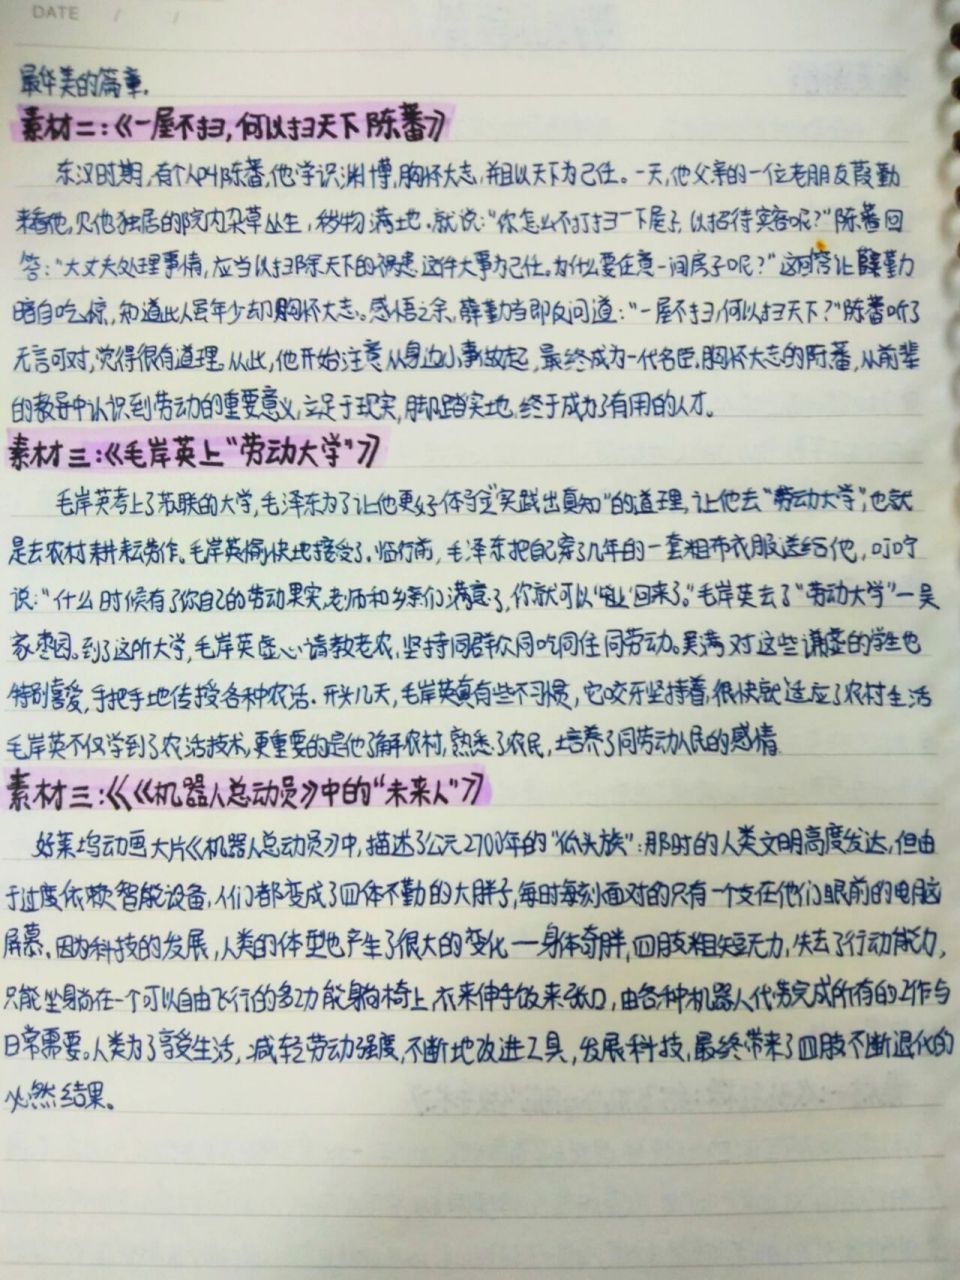 DATE / /
最华美的篇章.
素材二:《一屋不扫,何以扫天下 陈蕃》
东汉时期,有个人叫陈蕃,他学识渊博,胸怀大志,并且以天下为己任。一天,他父亲的一位老朋友薛勤
来看他,见他独居的院内杂草丛生,秽物满地.就说:"你怎么不打扫一下屋子,以招待宾客呢?"陈蕃回
答:"大丈夫处理事情,应当以扫除天下的祸患这件大事为己任。为什么要在意一间房子呢?"这回答让薛勤
暗自吃惊,知道此人虽年少却胸怀大志。感悟之余,薛勤当即反问道:"一屋不扫,何以扫天下?"陈蕃听了
无言可对,觉得很有道理.从此,他开始注意从身边小事做起,最终成为一代名臣.胸怀大志的陈蕃,从前辈
的教导中认识到劳动的重要意义,立足于现实,脚踏实地.终于成为了有用的人才。
素材三:《毛岸英上"劳动大学"》
毛岸英考上了苏联的大学,毛泽东为了让他更好体会"实践出真知"的道理,让他去"劳动大学",也就
是去农村耕耘劳作。毛岸英愉快地接受了.临行前,毛泽东把自己穿了几年的一套粗布衣服送给他,叮咛
说:"什么时候有了你自己的劳动果实,老师和乡亲们满意了,你就可以'毕业'回来了。"毛岸英去了"劳动大学"一吴
家枣园。到了这所大学,毛岸英虚心请教老农,坚持同群众同吃同住同劳动。吴满 对这些谦虚的学生也
特别喜爱,手把手地传授各种农活.开头几天,毛岸英真有些不习惯,它咬牙坚持着,很快就适应了农村生活
毛岸英不仅学到了农活技术,更重要的是他了解农村,熟悉了农民,培养了同劳动人民的感情
素材三:《《机器人总动员》中的"未来人"》
好莱坞动画大片《机器人总动员》中,描述了公元2700年的"低头族":那时的人类文明高度发达,但由
于过度依赖智能设备,人们都变成了四体不勤的大胖子,每时每刻面对的只有一个支在他们眼前的电脑
屏幕.因为科技的发展,人类的体型也产生了很大的变化一一身体奇胖,四肢粗短无力,失去了行动能力,
只能坐躺在一个可以自由飞行的多功能躺椅上,衣来伸手饭来张口,由各种机器人代劳完成所有的工作与
日常需要。人类为了享受生活,减轻劳动强度,不断地改进工具,发展科技,最终带来了四肢不断退化的
必然结果。